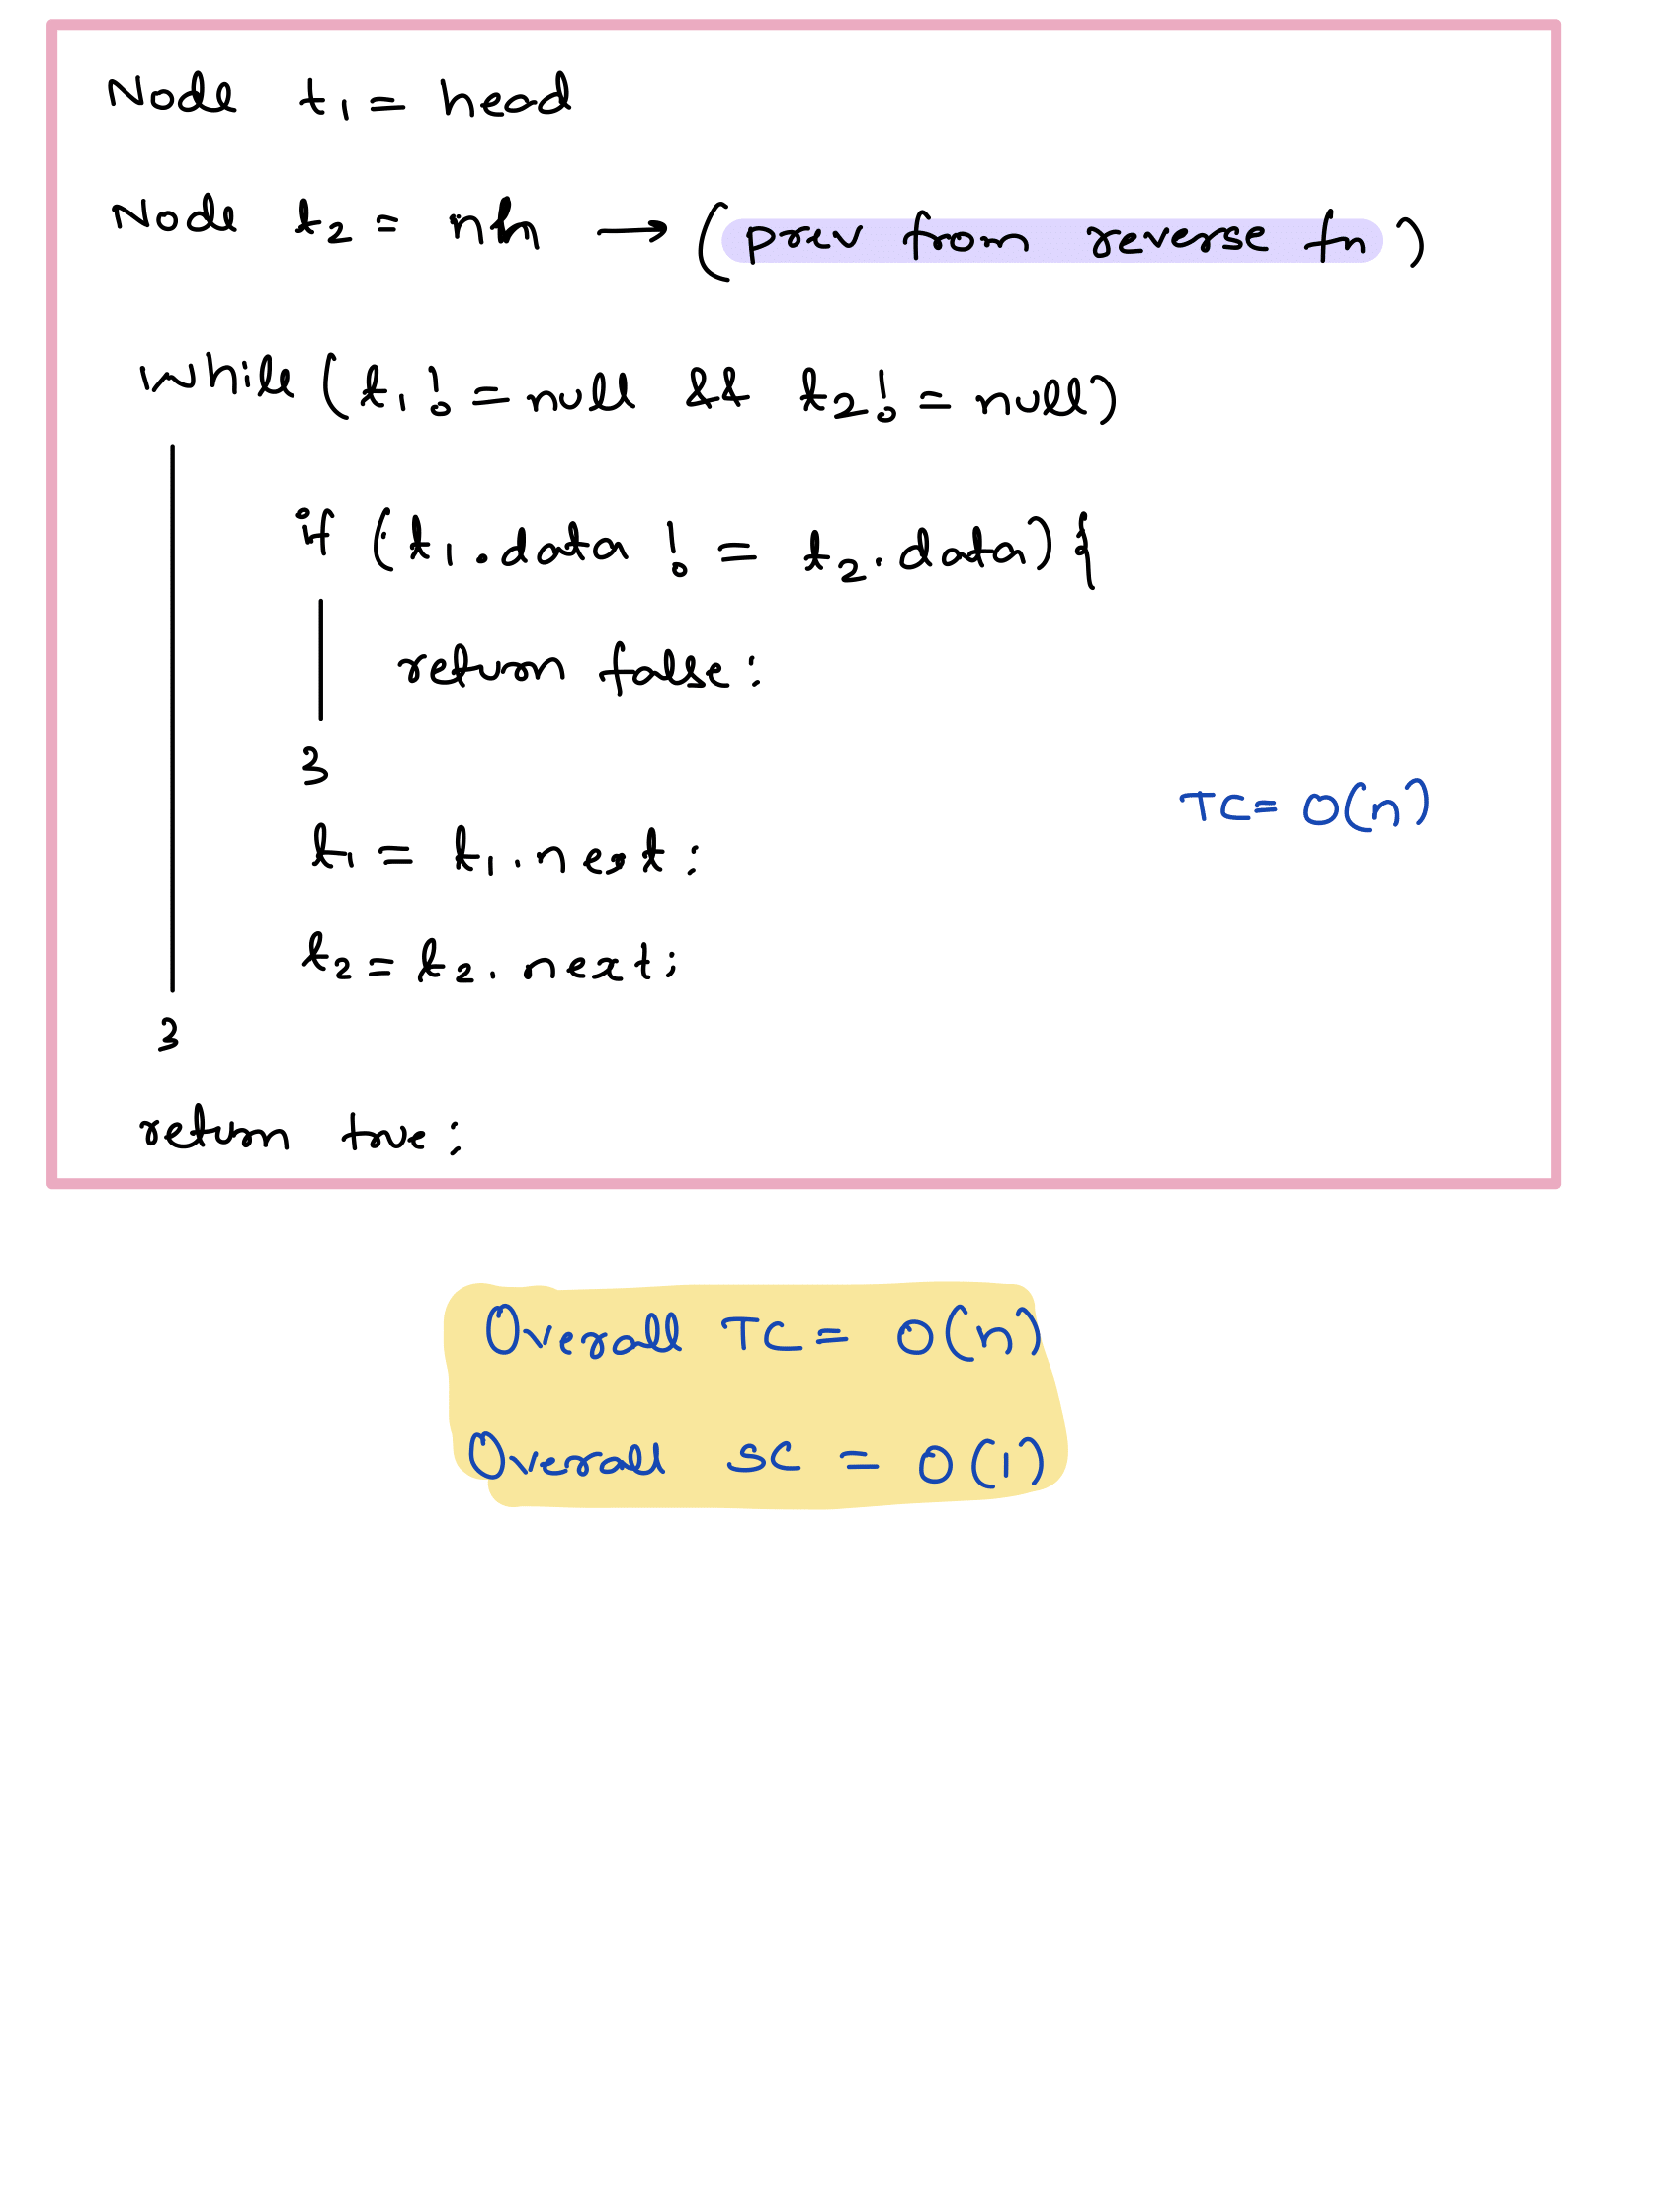 Node t1 = head
Node t2 = nh → (prev from reverse fn)
while (t1 != null && t2 != null)
if (t1.data != t2.data) {
return false;
}
TC = O(n)
t1 = t1.next;
t2 = t2.next;
}
return true;
Overall TC = O(n)
Overall SC = O(1)